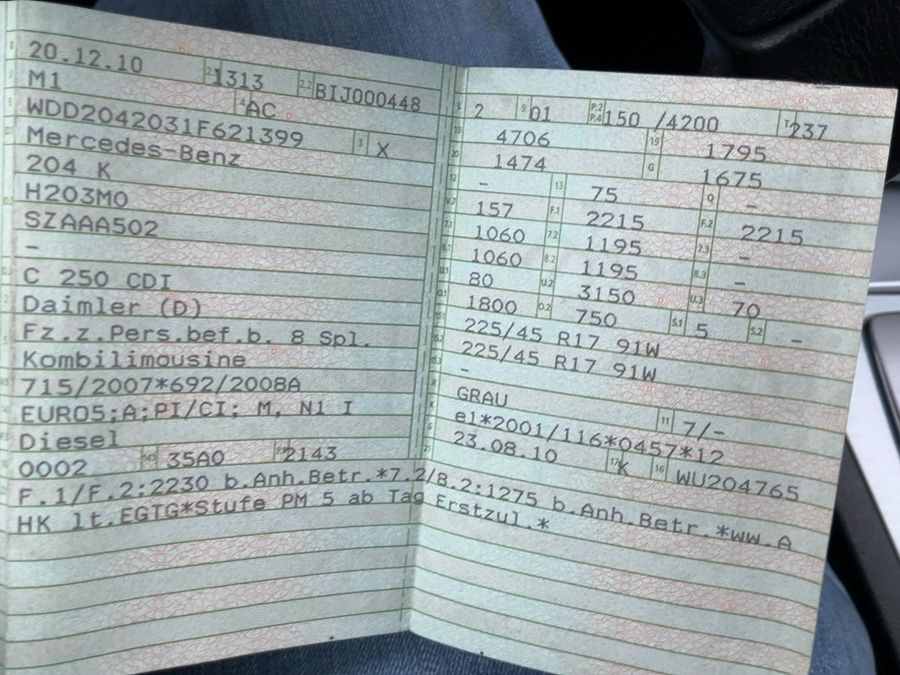 20.12.10 2.1 1313 2.2 BIJ000448
M1 4 AC
WDD2042031F621399 3 X
Mercedes-Benz
204 K
H203M0
SZAAA502
-
C 250 CDI
Daimler (D)
Fz.z.Pers.bef.b. 8 Spl.
Kombilimousine
715/2007*692/2008A
EURO5;A;PI/CI; M, N1 I
Diesel
0002 35A0 2143
L 2 9 01 P.2 P.4 150 /4200 T 237
18 4706 19 1795
20 1474 G 1675
12 - 13 75 Q -
V.7 157 F.1 2215 F.2 2215
7.1 1060 7.2 1195 7.3 -
8.1 1060 8.2 1195 8.3 -
U.1 80 U.2 3150 U.3 70
O.1 1800 O.2 750 S.1 5 S.2 -
225/45 R17 91W
225/45 R17 91W
-
GRAU 11 7/-
e1*2001/116*0457*12
23.08.10 17 K 16 WU204765
F.1/F.2:2230 b.Anh.Betr.*7.2/8.2:1275 b.Anh.Betr.*ww.A
HK lt.EGTG*Stufe PM 5 ab Tag Erstzul.*